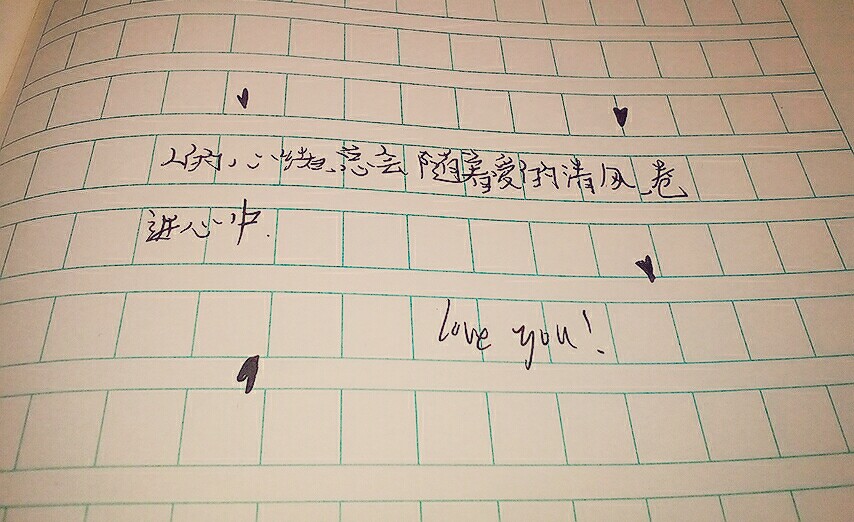 人的心绪总会随着爱的清风卷
进心中.
love you!